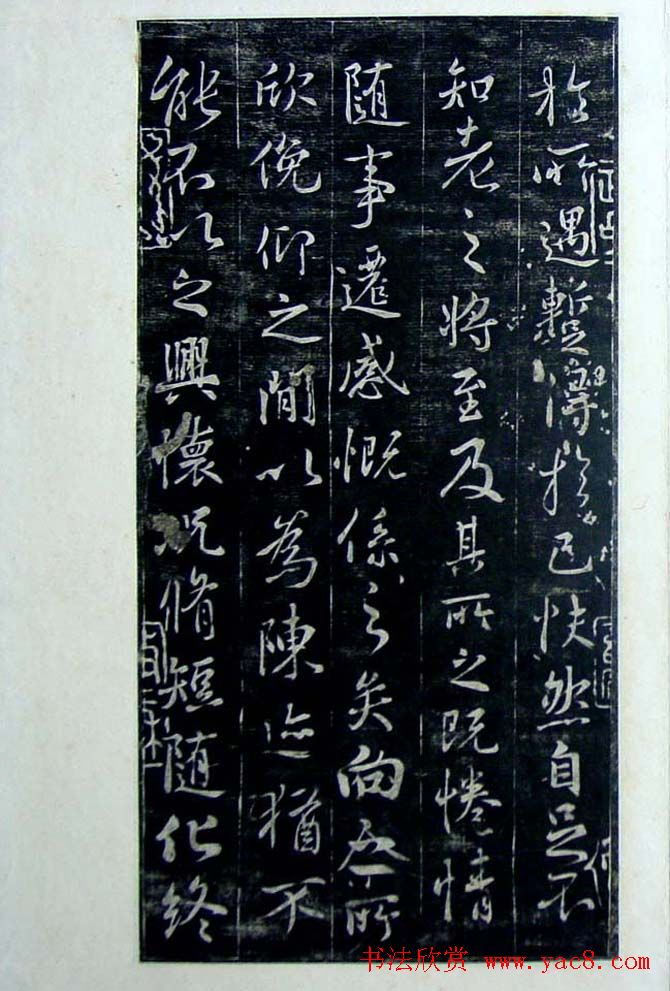 於所遇暫得於己怏然自足不
知老之將至及其所之既惓情
随事遷感慨係之矣向之所
欣俛仰之閒以為陳迹猶不
能不以之興懷况脩短随化終
书法欣赏 www.yac8.com